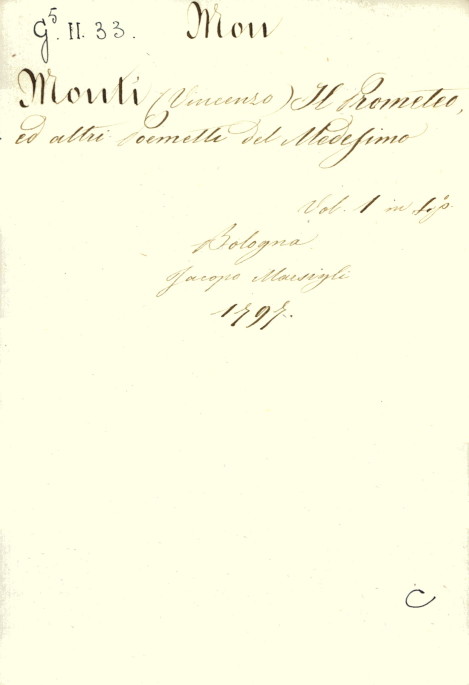 G⁵. II. 33. Mon
Monti (Vincenzo) Il Prometeo,
ed altri Poemetti del Medesimo
Vol. 1 in 4º
Bologna
Jacopo Marsigli
1797.
C